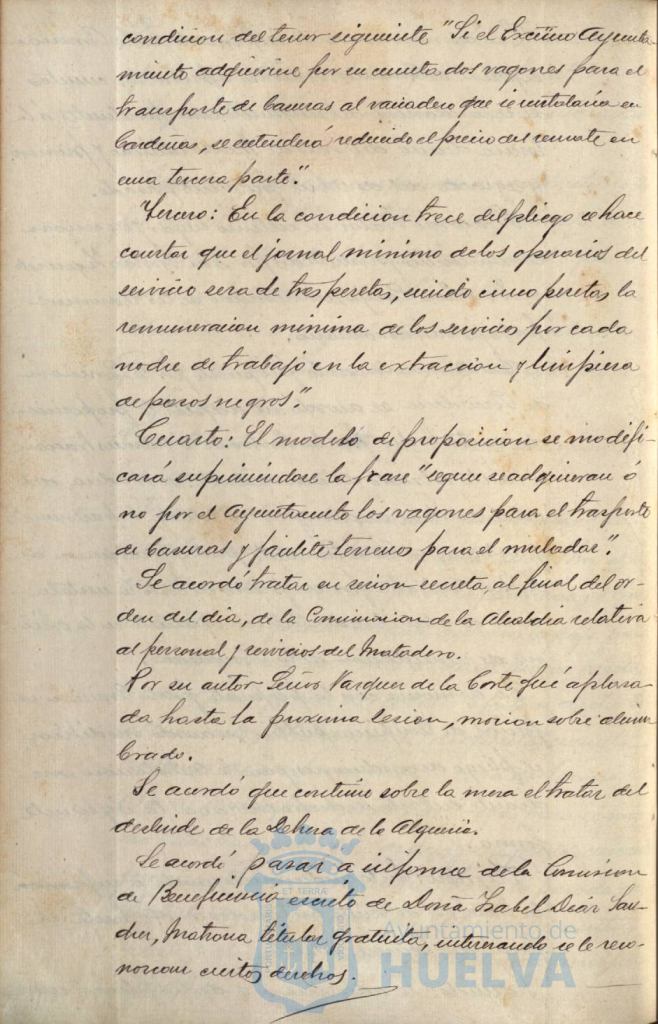 condicion del tenor siguiente "Si el Excmo Ayunta-
miento adquiriese por su cuenta dos vagones para el
transporte de basuras al vaciadero que se instalaria en
Cardeñas, se entenderá reducido el precio del remate en
una tercera parte."
Tercero: En la condicion trece del pliego se hace
constar que el jornal minimo de los operarios del
servicio sera de tres pesetas, siendo cinco pesetas la
remuneracion minima de los servicios por cada
noche de trabajo en la extraccion y limpieza
de pozos negros."
Cuarto: El modelo de proposicion se modifi-
cará suprimiendose la frase "segun se adquieran ó
no por el Ayuntamiento los vagones para el trasporte
de basuras y facilite terrenos para el muladar".
Se acordó tratar en sesion secreta, al final del or-
den del dia, de la Comunicacion de la Alcaldia relativa
al personal y servicios del Matadero.
Por su autor Señor Vazquez de la Corte fué aplaza-
da hasta la proxima sesion, mocion sobre alum-
brado.
Se acordó que continue sobre la mesa el tratar del
deslinde de la Dehesa de la Alqueria.
Se acordó pasar a informe de la Comision
de Beneficencia escrito de Doña Isabel Diaz San-
chez, Matrona titular gratuita, interesando se le reco-
nozcan ciertos derechos.
ET TERRÆ
Ayuntamiento de
HUELVA